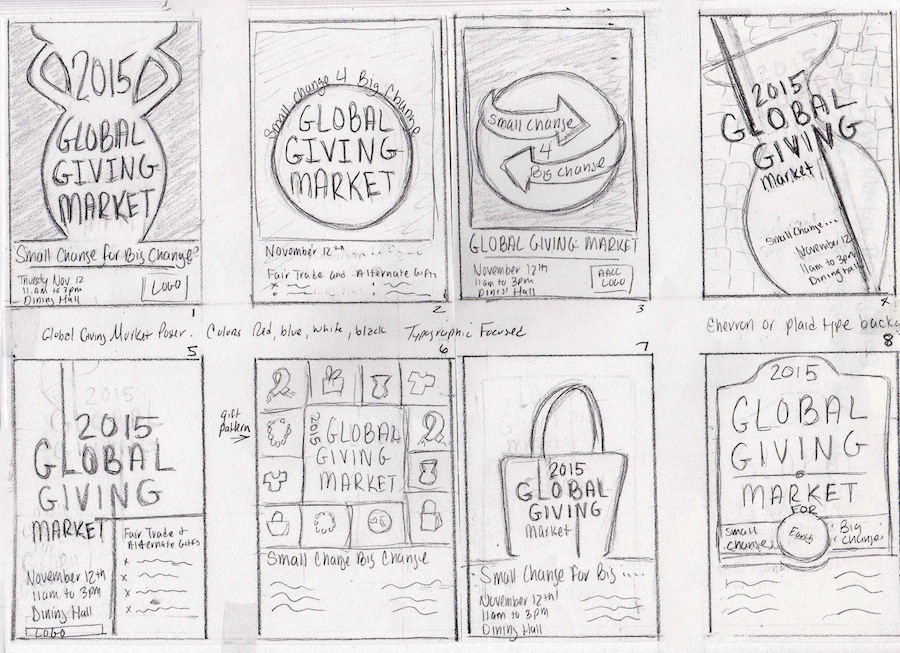 2015
GLOBAL
GIVING
MARKET
Small Change for Big Change?
Thursday Nov 12
11AM to 3pm
Dining Hall
LOGO
1
Small Change 4 Big Change
GLOBAL
GIVING
MARKET
November 12th
Fair Trade and Alternate Gifts
2
Small Change
4
Big Change
GLOBAL GIVING MARKET
November 12th
11am to 3pm
Dining Hall
AACC
LOGO
3
2015
GLOBAL
GIVING
Market
Small Change...
November 12
11am to 3pm
Dining Hall
4
Global Giving Market Poser. Colors Red, blue, white, black Typographic Focused
Chevron or plaid type backg
5
2015
GLOBAL
GIVING
MARKET
Fair Trade +
Alternate Gifts
x
x
x
x
November 12th
11am to 3pm
Dining Hall
LOGO
6
gift
pattern
2015
GLOBAL
GIVING
MARKET
Small Change Big Change
7
2015
GLOBAL
GIVING
Market
Small Change For Big ....
November 12th
11am to 3pm
Dining Hall
8
2015
GLOBAL
GIVING
MARKET
FOR
Small
Change
Earth
Big
Change